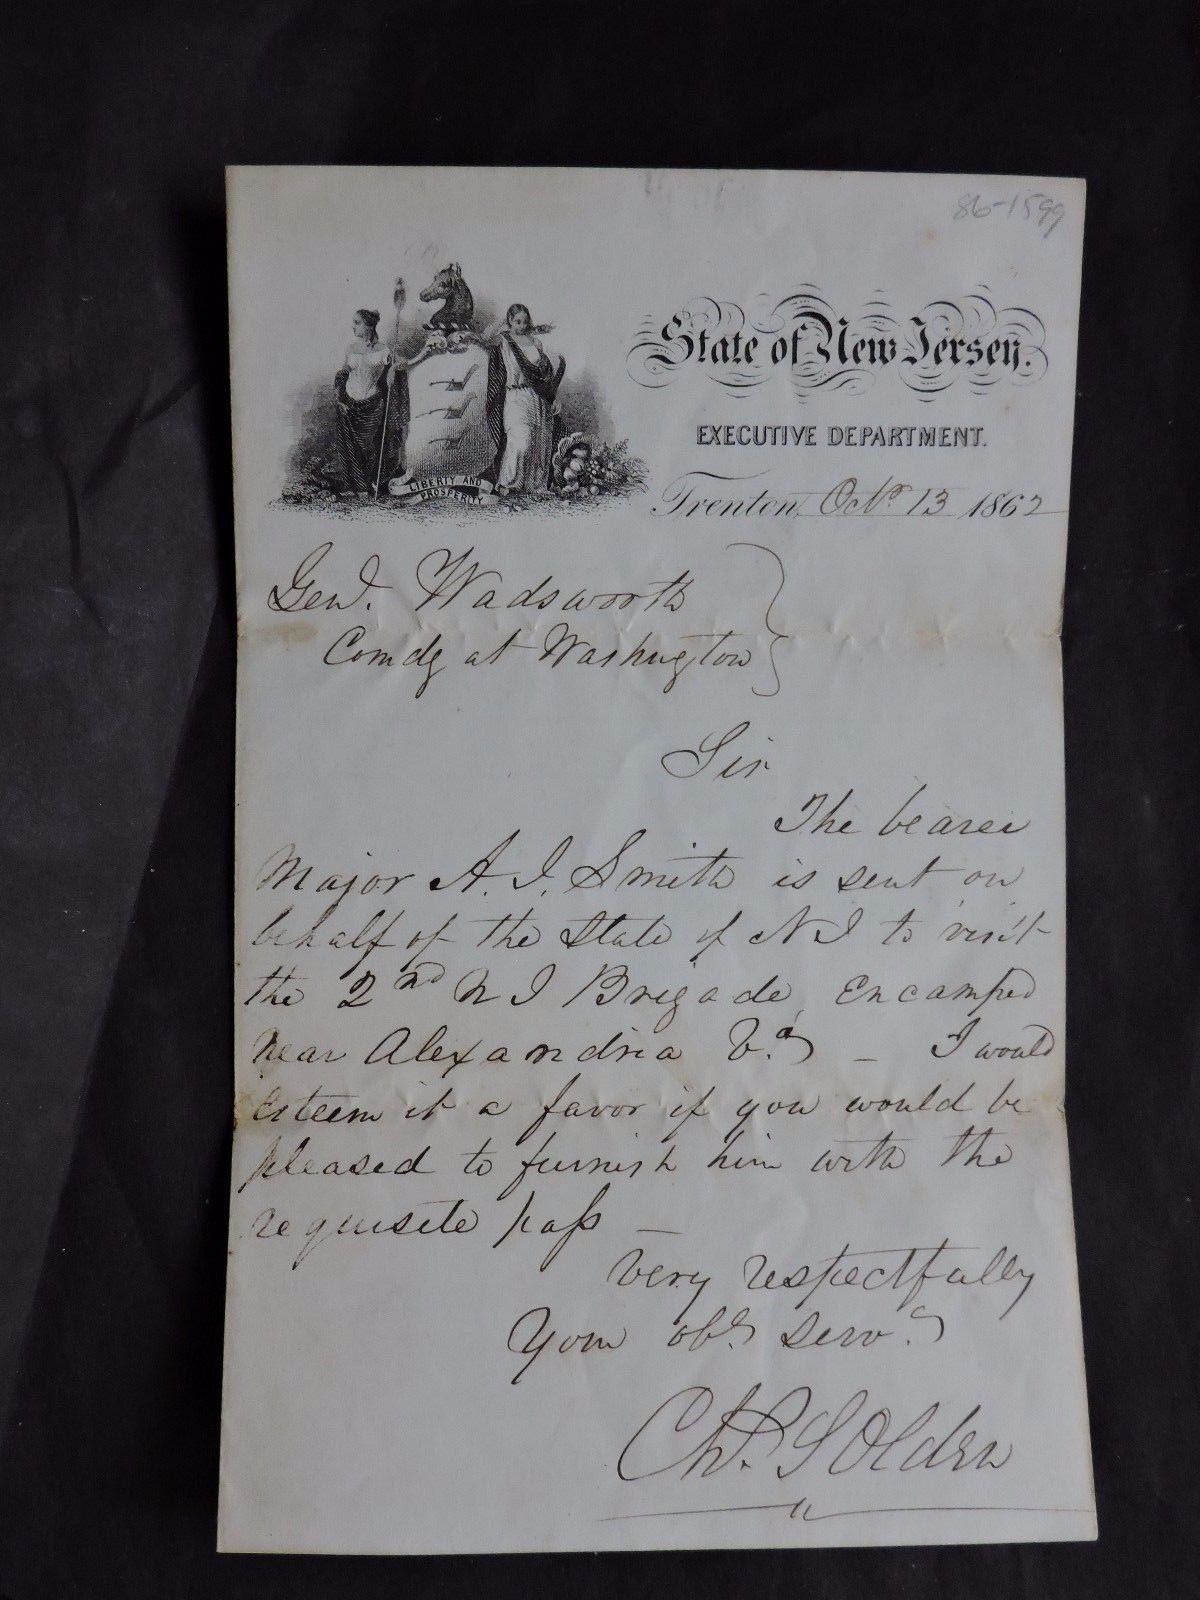 86-1599
State of New Jersey.
EXECUTIVE DEPARTMENT.
LIBERTY AND
PROSPERITY
Trenton, Octr 13 1862
Genl. Wadsworth
Comdg at Washington
Sir
The bearer
Major A. J. Smith is sent on
behalf of the State of N J to visit
the 2nd N J Brigade, Encamped
near Alexandria Va – I would
esteem it a favor if you would be
pleased to furnish him with the
requisite pass –
Very respectfully
Your obt servt
Chs. S Olden